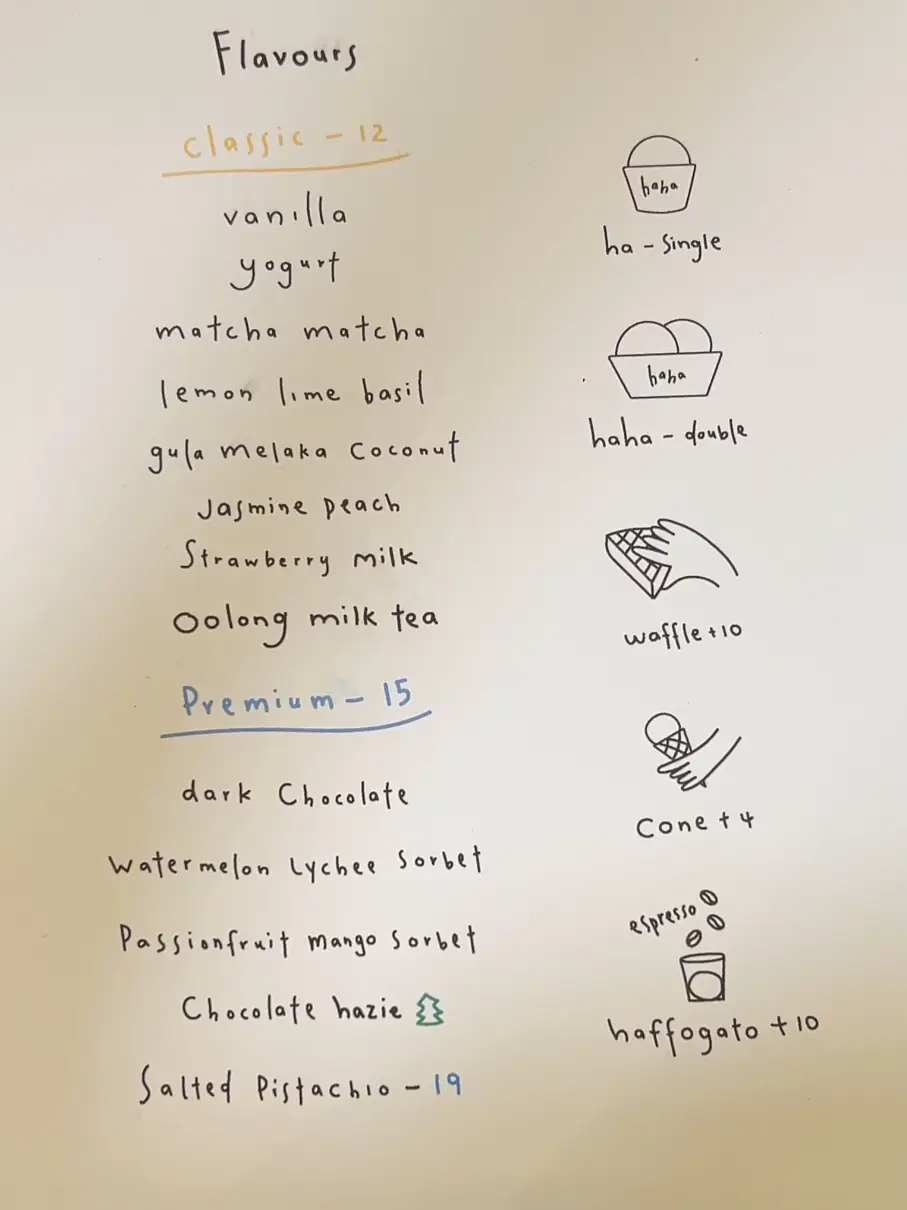 Flavours
classic - 12
vanilla
yogurt
matcha matcha
lemon lime basil
gula melaka coconut
Jasmine peach
Strawberry milk
Oolong milk tea
Premium - 15
dark Chocolate
Watermelon Lychee Sorbet
Passionfruit mango sorbet
Chocolate hazie
Salted Pistachio - 19
haha
ha - single
haha
haha - double
waffle + 10
Cone + 4
espresso
haffogato + 10